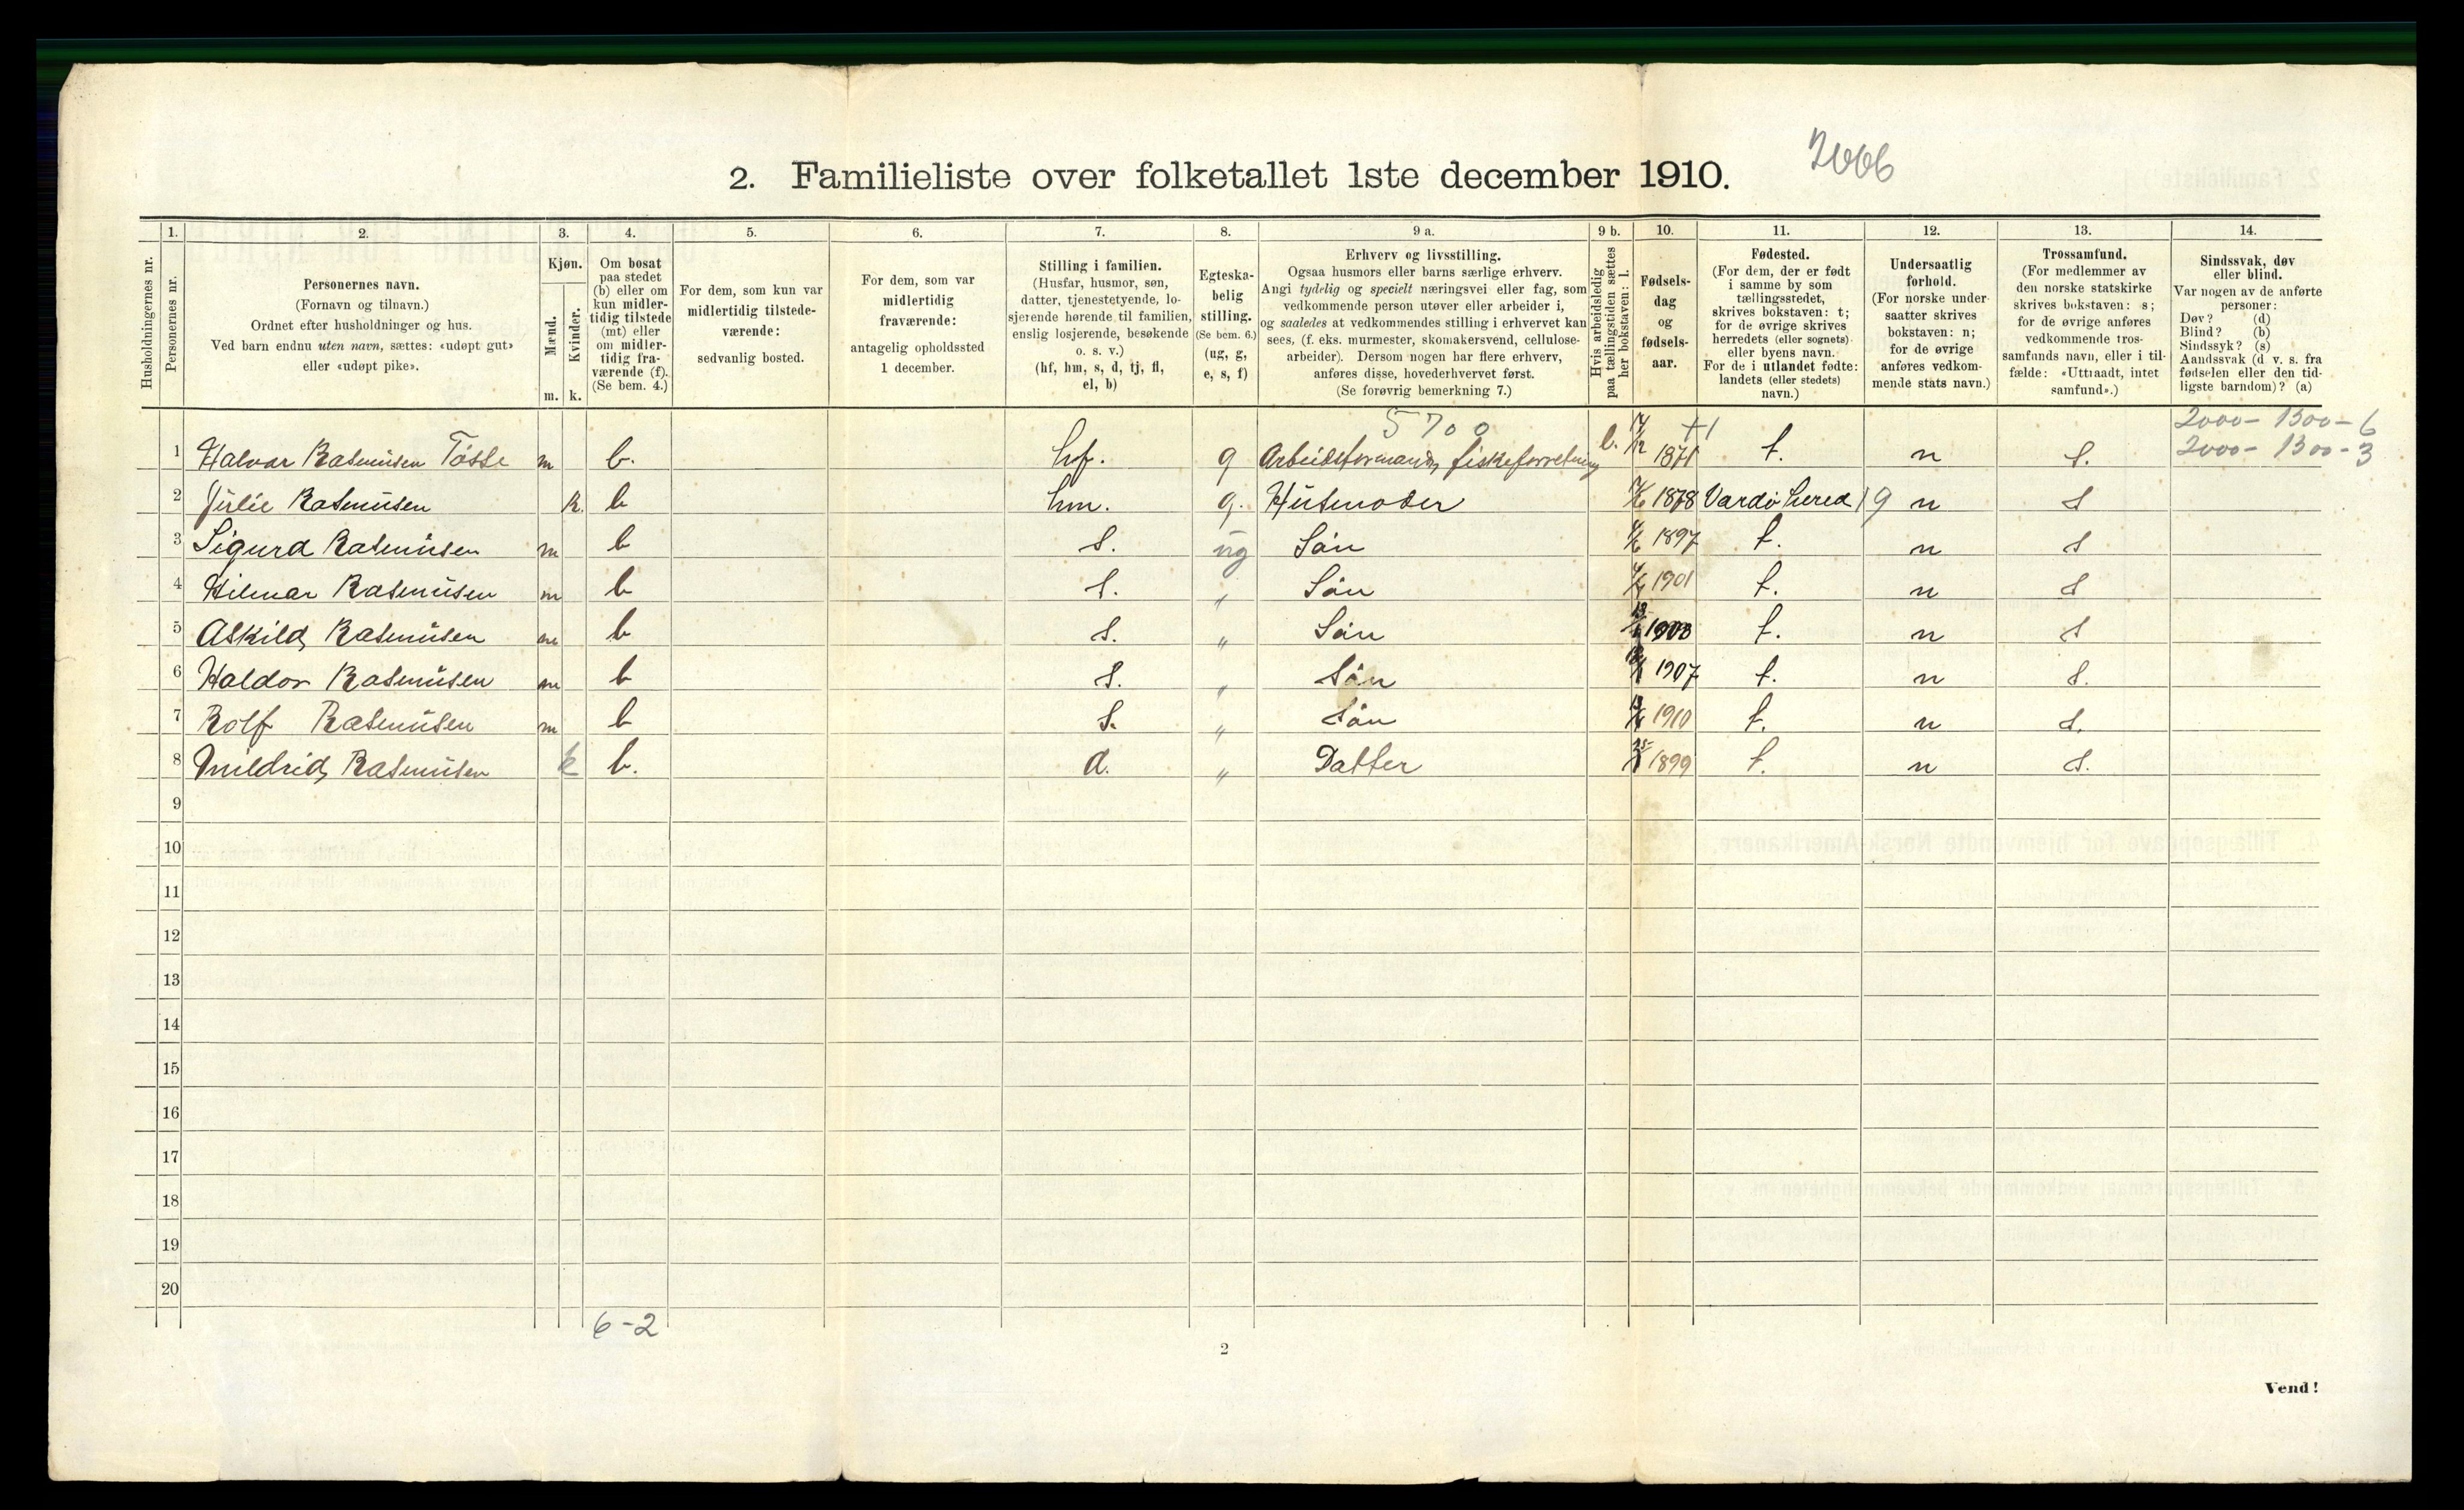 2. Familieliste over folketallet 1ste december 1910.
2006
1. 2. 3. 4. 5. 6. 7. 8. 9 a. 9 b. 10. 11. 12. 13. 14.
Husholdningernes nr.
Personernes nr.
Personernes navn.
(Fornavn og tilnavn.)
Ordnet efter husholdninger og hus.
Ved barn endnu uten navn, sættes: «udøpt gut»
eller «udøpt pike».
Kjøn.
Mænd.
Kvinder.
m. k.
Om bosat
paa stedet
(b) eller om
kun midler-
tidig tilstede
(mt) eller
om midler-
tidig fra-
værende (f).
(Se bem. 4.)
For dem, som kun var
midlertidig tilstede-
værende:
sedvanlig bosted.
For dem, som var
midlertidig
fraværende:
antagelig opholdssted
1 december.
Stilling i familien.
(Husfar, husmor, søn,
datter, tjenestetyende, lo-
sjerende hørende til familien,
enslig losjerende, besøkende
o. s. v.)
(hf, hm, s, d, tj, fl,
el, b)
Egteska-
belig
stilling.
(Se bem. 6.)
(ug, g,
e, s, f)
Erhverv og livsstilling.
Ogsaa husmors eller barns særlige erhverv.
Angi tydelig og specielt næringsvei eller fag, som
vedkommende person utøver eller arbeider i,
og saaledes at vedkommendes stilling i erhvervet kan
sees, (f. eks. murmester, skomakersvend, cellulose-
arbeider). Dersom nogen har flere erhverv,
anføres disse, hovederhvervet først.
(Se forøvrig bemerkning 7.)
Hvis arbeidsledig
paa tællingstiden sættes
her bokstaven: l.
Fødsels-
dag
og
fødsels-
aar.
Fødested.
(For dem, der er født
i samme by som
tællingsstedet,
skrives bokstaven: t;
for de øvrige skrives
herredets (eller sognets)
eller byens navn.
For de i utlandet fødte:
landets (eller stedets)
navn.)
Undersaatlig
forhold.
(For norske under-
saatter skrives
bokstaven: n;
for de øvrige
anføres vedkom-
mende stats navn.)
Trossamfund.
(For medlemmer av
den norske statskirke
skrives bokstaven: s;
for de øvrige anføres
vedkommende tros-
samfunds navn, eller i til-
fælde: «Uttraadt, intet
samfund».)
Sindssvak, døv
eller blind.
Var nogen av de anførte
personer:
Døv? (d)
Blind? (b)
Sindssyk? (s)
Aandssvak (d. v. s. fra
fødselen eller den tid-
ligste barndom)? (a)
5700
2000 - 1300 - 6
2000 - 1300 - 3
1 Halvar Rasmusen Tösse m b. hf. g Arbeidsformand, fiskeforretning l. 1871 t. n s.
2 Julie Rasmusen k. b hm. g. Husmoder 1878 Vardö herred 19 n s
3 Sigurd Rasmusen m b s. ug Sön 1897 t. n s
4 Hilmar Rasmusen m b s. " Sön 1901 t. n s
5 Askild Rasmusen m b s. " Sön t. n s
6 Haldor Rasmusen m b s. " Sön 1907 t. n s.
7 Rolf Rasmusen m b s. " Sön 1910 t. n s.
8 Mildrid Rasmusen k b. d. " Datter 1899 t. n s.
9
10
11
12
13
14
15
16
17
18
19
20
6-2
2
Vend!